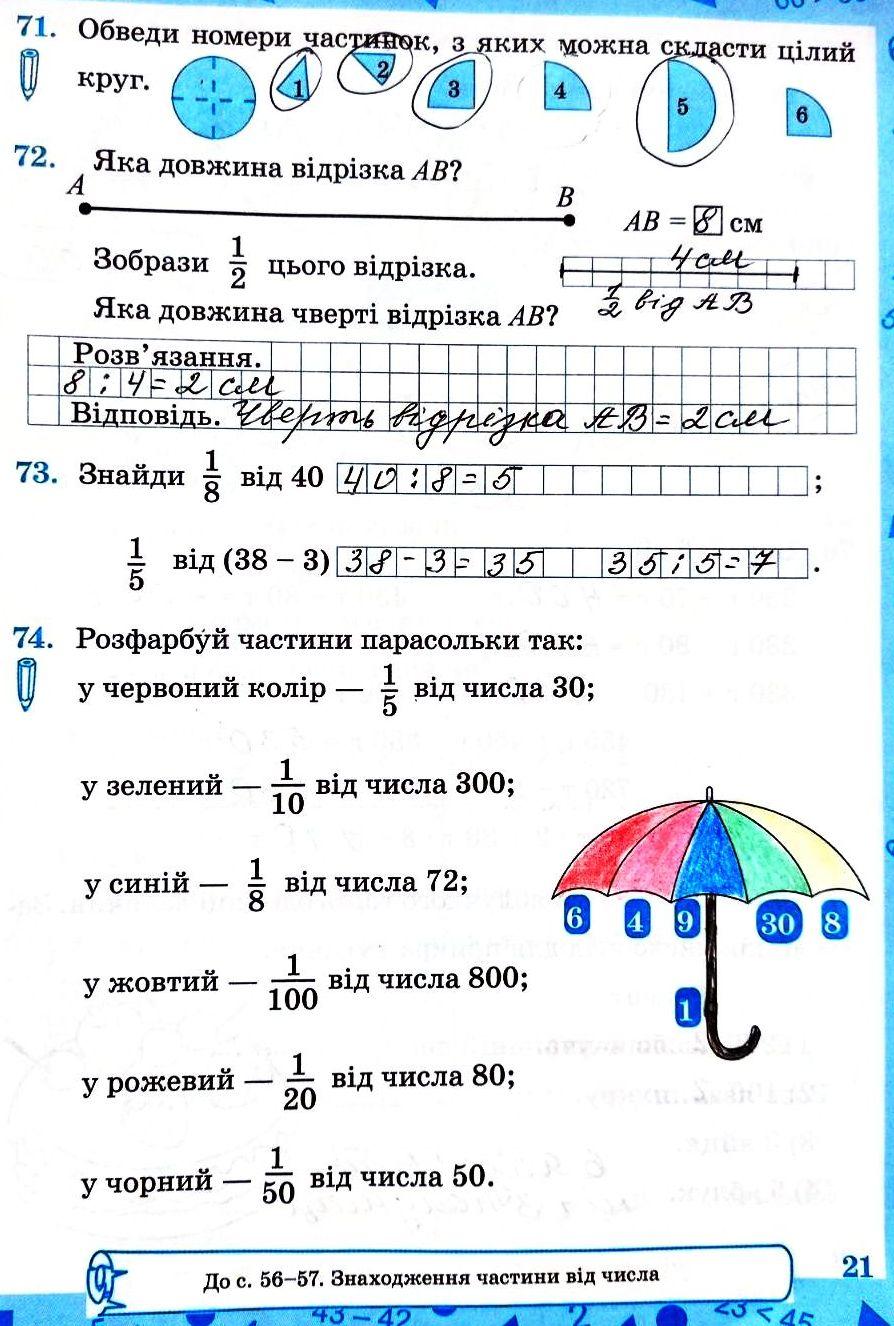 71. Обведи номери частинок, з яких можна скласти цілий
круг. 1 2 3 4 5 6
72. Яка довжина відрізка AB?
A B
AB = 8 см
Зобрази 1/2 цього відрізка. 4 см
1/2 від АВ
Яка довжина чверті відрізка AB?
Розв’язання.
8 : 4 = 2 см
Відповідь. Чверть відрізка АВ = 2 см
73. Знайди 1/8 від 40 40 : 8 = 5 ;
1/5 від (38 – 3) 38 - 3 = 35 35 : 5 = 7 .
74. Розфарбуй частини парасольки так:
у червоний колір — 1/5 від числа 30;
у зелений — 1/10 від числа 300;
у синій — 1/8 від числа 72;
6 4 9 30 8
у жовтий — 1/100 від числа 800;
1
у рожевий — 1/20 від числа 80;
у чорний — 1/50 від числа 50.
До с. 56–57. Знаходження частини від числа
21
43 – 42 2 23 < 45